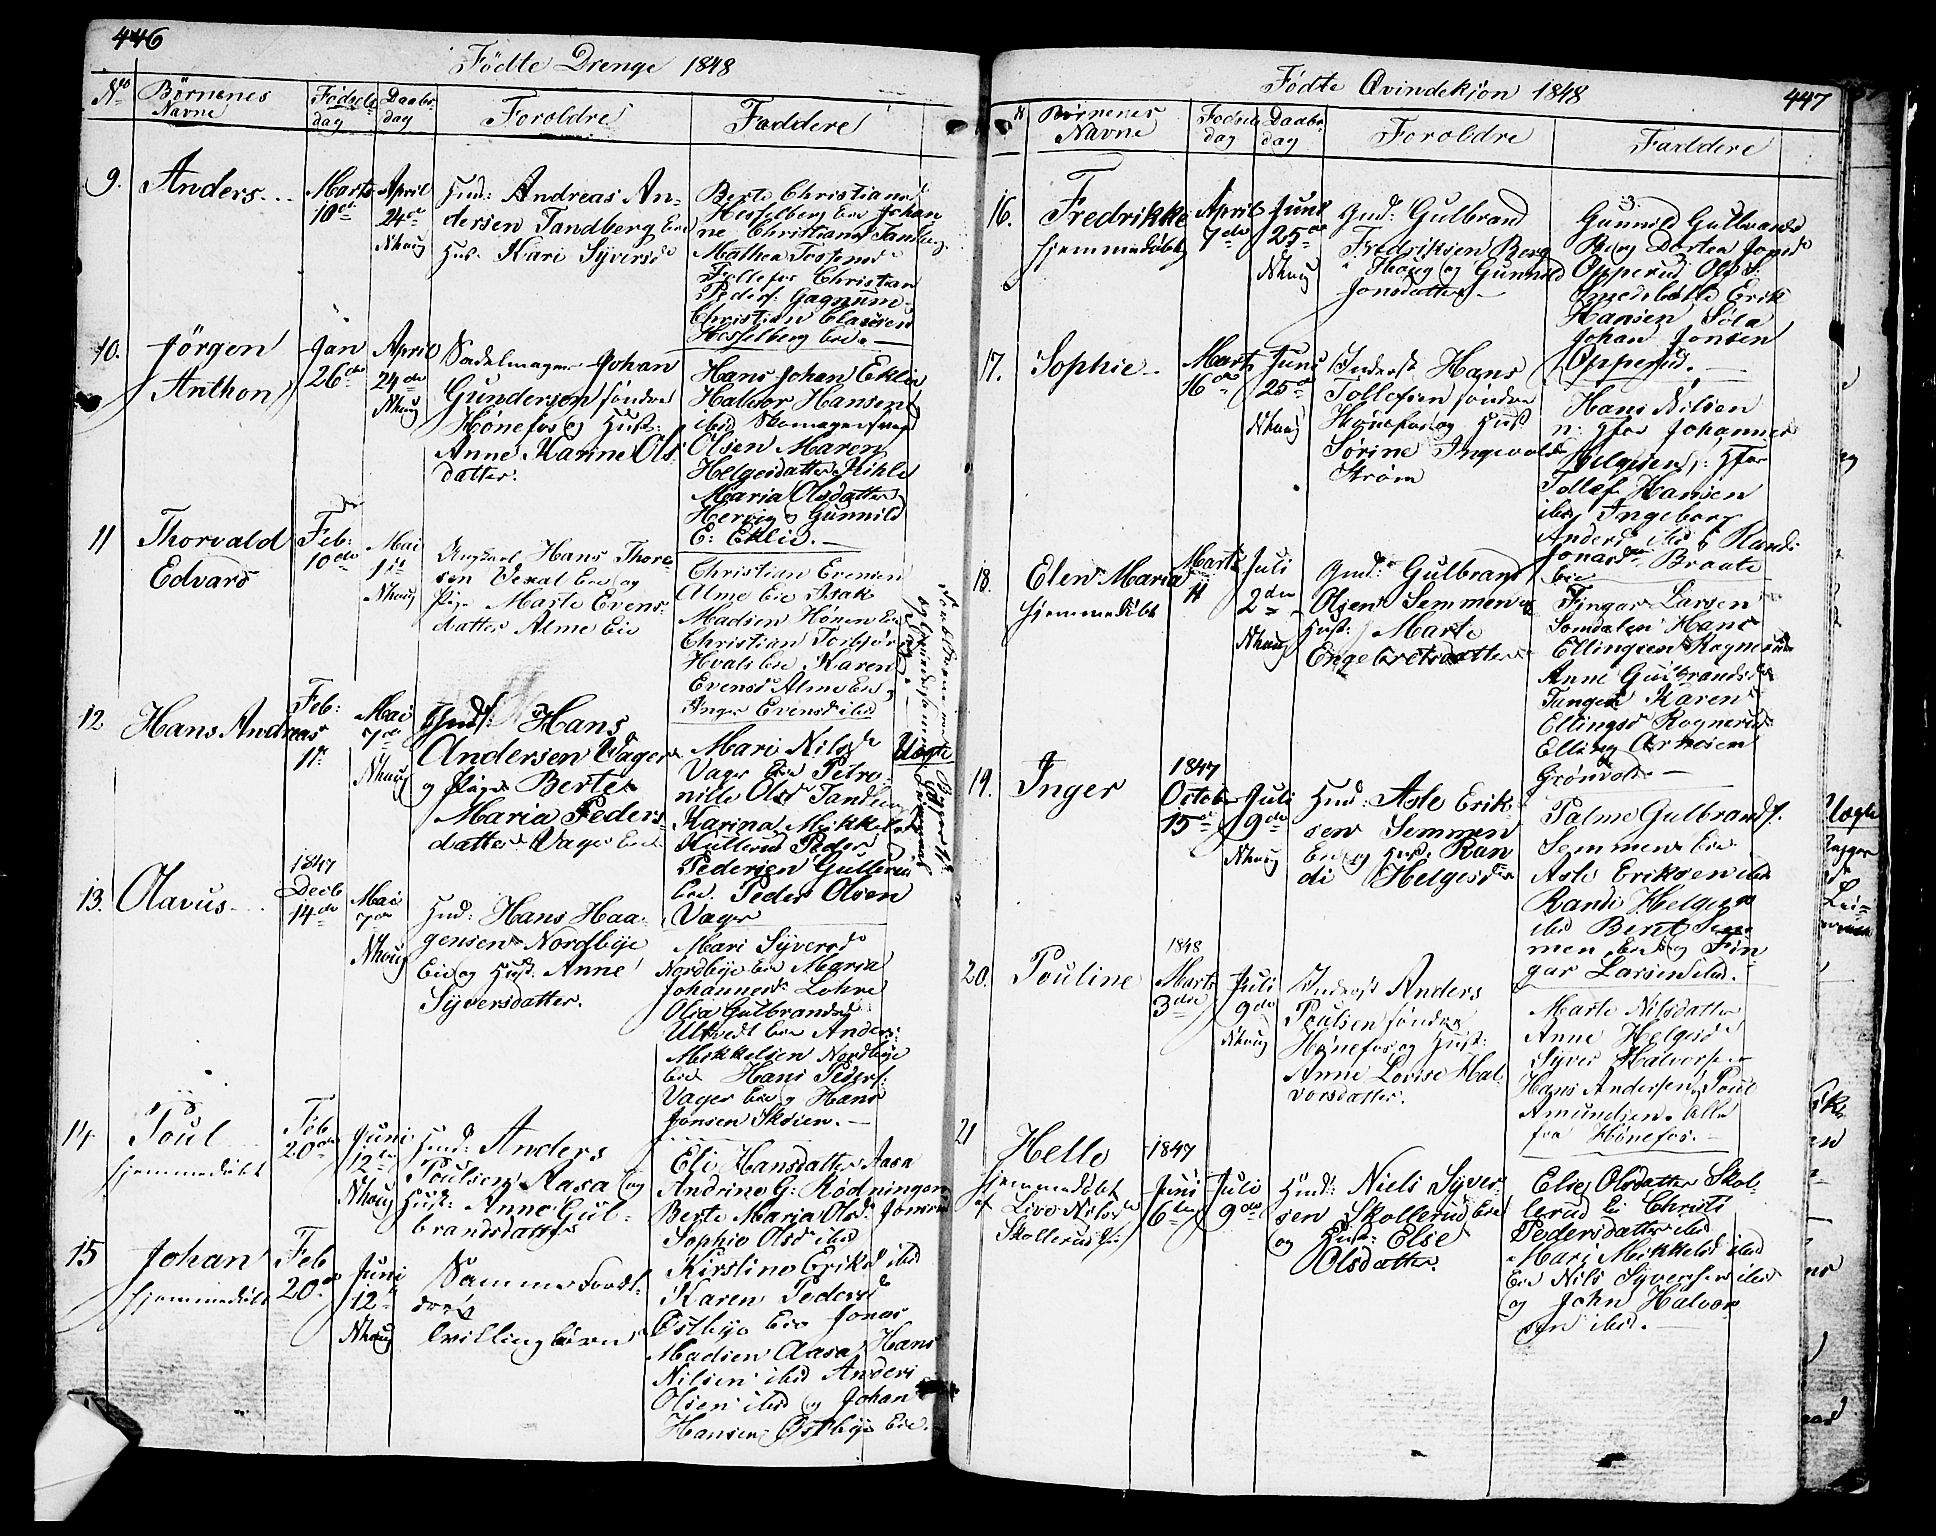 446
Fødte Drenge 1848
No Børnenes Navne Fødsels dag Daabs dag Foroldre Faddere
9. Anders
Marts 10de
April 24de
Nhaug
Gmd: Andreas An-
dersen Tandberg Eie
Hus. Kari Syversd
Berte Christians
Hesselberg Eie Johan
ne Christians Tandbg.
Mathea Tostensd
Follefos Christian
Peders: Gagnum
Christian Clausen
Hesselberg Eie.
10. Jörgen
Anthon
Jan 26de
April 24de
Nhaug
Sadelmager Johan
Gundersen søndre
Hønefos og Hust:
Anne Karine Ols
datter.
Hans Johan Eklie
Halvor Hansen
ibid Skomagersvend
Olsen Maren
Helgesdatter Kihle
Maria Olsdatter
Hervig og Gunnild
E: Eklie.
11 Thorvald
Edvard
Feb: 10de
Mai 1ste
Nhaug
Ungkarl Hans Thore-
sen Vexal Eie og
Pige Marte Evens-
datter Alme Eie
Christian Evensen
Alme Eie Isak
Madsen Hønen Eie
Christian Torbjør
Hvals Eie Karen
Evensd Alme Eie
Inger Evensd ibid
12 Hans Andreas
Feb: 17.
Mai 7de
Nhaug
Gmds: Hans
Andersen Vager
og Pige Berte
Maria Peders-
datter Vager Eie
Mari Nilsd
Vager Eie Petro-
nille Olsd Tandberg
Karina Mikkelsd
Kullerud Peder
Pedersen Gullerud
Eie Peder Olsen
Vager
Uægte
13. Olavus
1847
Decb 14de
Mai 7de
Nhaug
Hmd: Hans Haa-
gensen Nordbye
Eie og Hust: Anne
Syversdatter.
Mari Syversd
Nordbye Eie Maria
Johannesd Lohre
Olea Gulbrandsd
Ultvedt Eie Anders
Mikkelsen Nordbye
Eie Hans Peders:
Vager Eie og Hans
Jonsen Skoien.
14. Poul
hjemmedøbt
Feb 20de
Juni 12te
Nhaug
Hmd: Anders
Poulsen Aasa og
Hust: Anne Gul-
brandsdatter
Eli Hansdatter Aasa
Andrine G: Rødningen
Berte Maria Olsd Jonsrud
Sophie Olsd ibid
15 Johan
hjemmedøbt
Feb 20de
Juni 12te
Nhaug
Samme Foræl-
dre
tvillingbørn
Kirstine Eriksd ibid
Karen Pedersd
Østbye Eie Jonas
Madsen Aasa Hans
Nilsen ibid Anders
Olsen ibid og Johan
Hansen Østbye Eie.
447
Fødte Qvindekjøn 1848
N Børnenes Navne Fødsels dag Daabs dag Foroldre Faddere
16. Fredrikke
hjemmedøbt
April 7de
Juni 25de
Nhaug
Gmd: Gulbrand
Fredriksen Berg
i Haug og Gunnild
Jonsdatter
Gunnild Gulbrandsd
Berg Dorten Jonsd
Opperud Ole S:
Smedsbøle Erik
Hansen Søla
Johan Jonsen
Opperud.
17. Sophie
Marts 16de
Juni 25de
Nhaug
Inderst Hans
Tollefsen søndre
Hønefos og Hust
Sørine Ingevalds
Strøm
Hans Nilsen
n: Hfos Johannes
Helgesen s: Hfos
Tollef Hansen
ibid Ingeborg
Andersd ibid og Randi
Jonasd Braate
Eie
18. Elen Maria
hjemmedøbt
Marts 11
Juli 2den
Nhaug
Gmd: Gulbrand
Olsen Semmen og
Hust: Marte
Engebretsdatter
Fingar Larsen
Somdalen Hans
Ellingsen Rognerud
Anne Gulbrandsd
Tangen Karen
Ellingsd Rognerud
Elling Arnesen
Grønvold.
19. Inger
1847
October 15de
Juli 9de
Nhaug
Hmd: Asle Erik-
sen Semmen
Eie og Hust: Ran
di Helgesd
Palme Gulbrands.
Semmen Eie
Asle Eriksen ibid
Randi Helgesd
ibid Berit Sem
men Eie og Fin
gar Larsen ibid.
20. Pouline
1848
Marts 3die
Juli 9de
Nhaug
Inderst Anders
Poulsen søndre
Hønefos og Hust:
Anne Lovise Hal-
vorsdatter.
Marte Nilsdatter
Anne Helgesd
Syver Halvorsen
Hans Andersen og Poul
Amundsen alle
fra Hønefos.
21 Helle
hjemmedøbt
af Live Nilsd
Skollerud Eie
1847
Juni 6te
Juli 9de
Hmd: Niels Syver-
sen Skollerud Eie
og Hust: Else
Olsdatter.
Elie Olsdatter Skol-
lerud Ei Christi
Pedersdatter ibid
Mari Mikkelsd ibid
Eie Nils Syversen ibid
og John Halvor
sen ibid.
Uægte